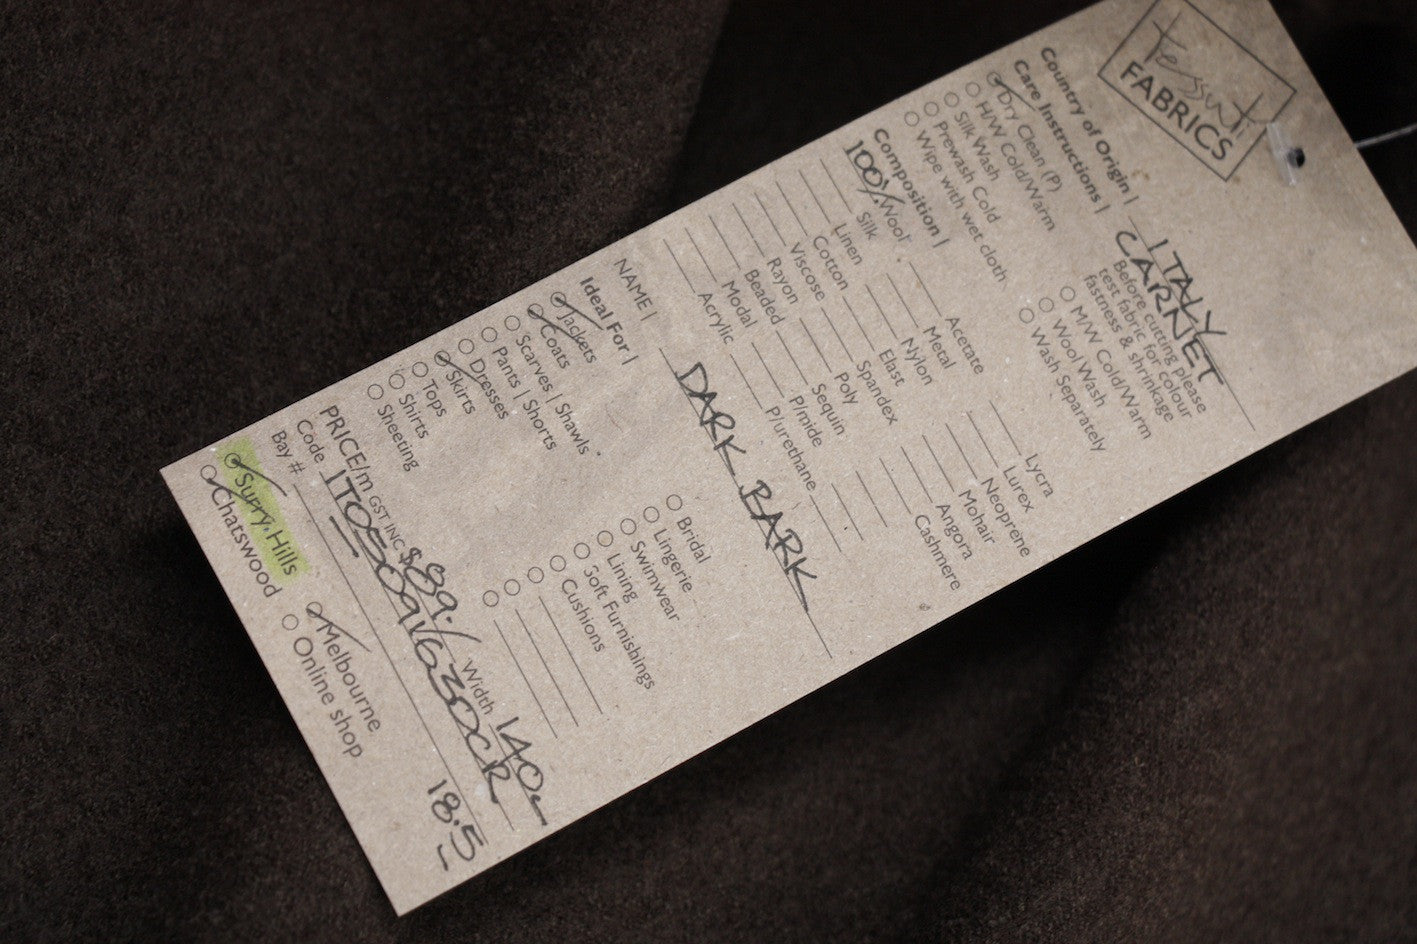 tessuti
FABRICS
Country of Origin | ITALY
CARNET
Care Instructions |
Before cutting please
test fabric for colour
fastness & shrinkage
Dry Clean (P)
H/W Cold/Warm
Silk Wash
Prewash Cold
Wipe with wet cloth
M/W Cold/Warm
Wool Wash
Wash Separately
Composition |
100% Wool
Silk
Linen
Cotton
Viscose
Rayon
Beaded
Modal
Acrylic
Acetate
Metal
Nylon
Elast
Spandex
Poly
Sequin
P/mide
P/urethane
Lycra
Lurex
Neoprene
Mohair
Angora
Cashmere
NAME | DARK BARK
Ideal For |
Jackets
Coats
Scarves | Shawls
Pants | Shorts
Dresses
Skirts
Tops
Shirts
Sheeting
Bridal
Lingerie
Swimwear
Lining
Soft Furnishings
Cushions
PRICE/m GST INC $89./ Width 140
Code
Bay # 18.5
Surry Hills
Chatswood
Melbourne
Online shop